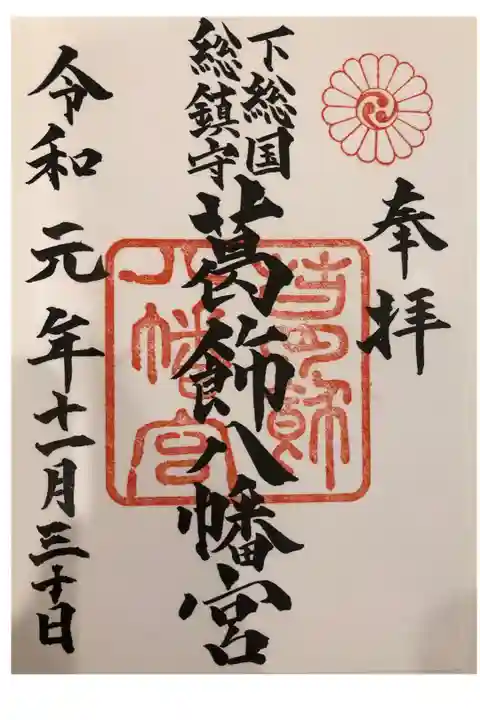 奉拝
下総国
総鎮守
葛飾八幡宮
令和元年十一月三十日
八幡宮